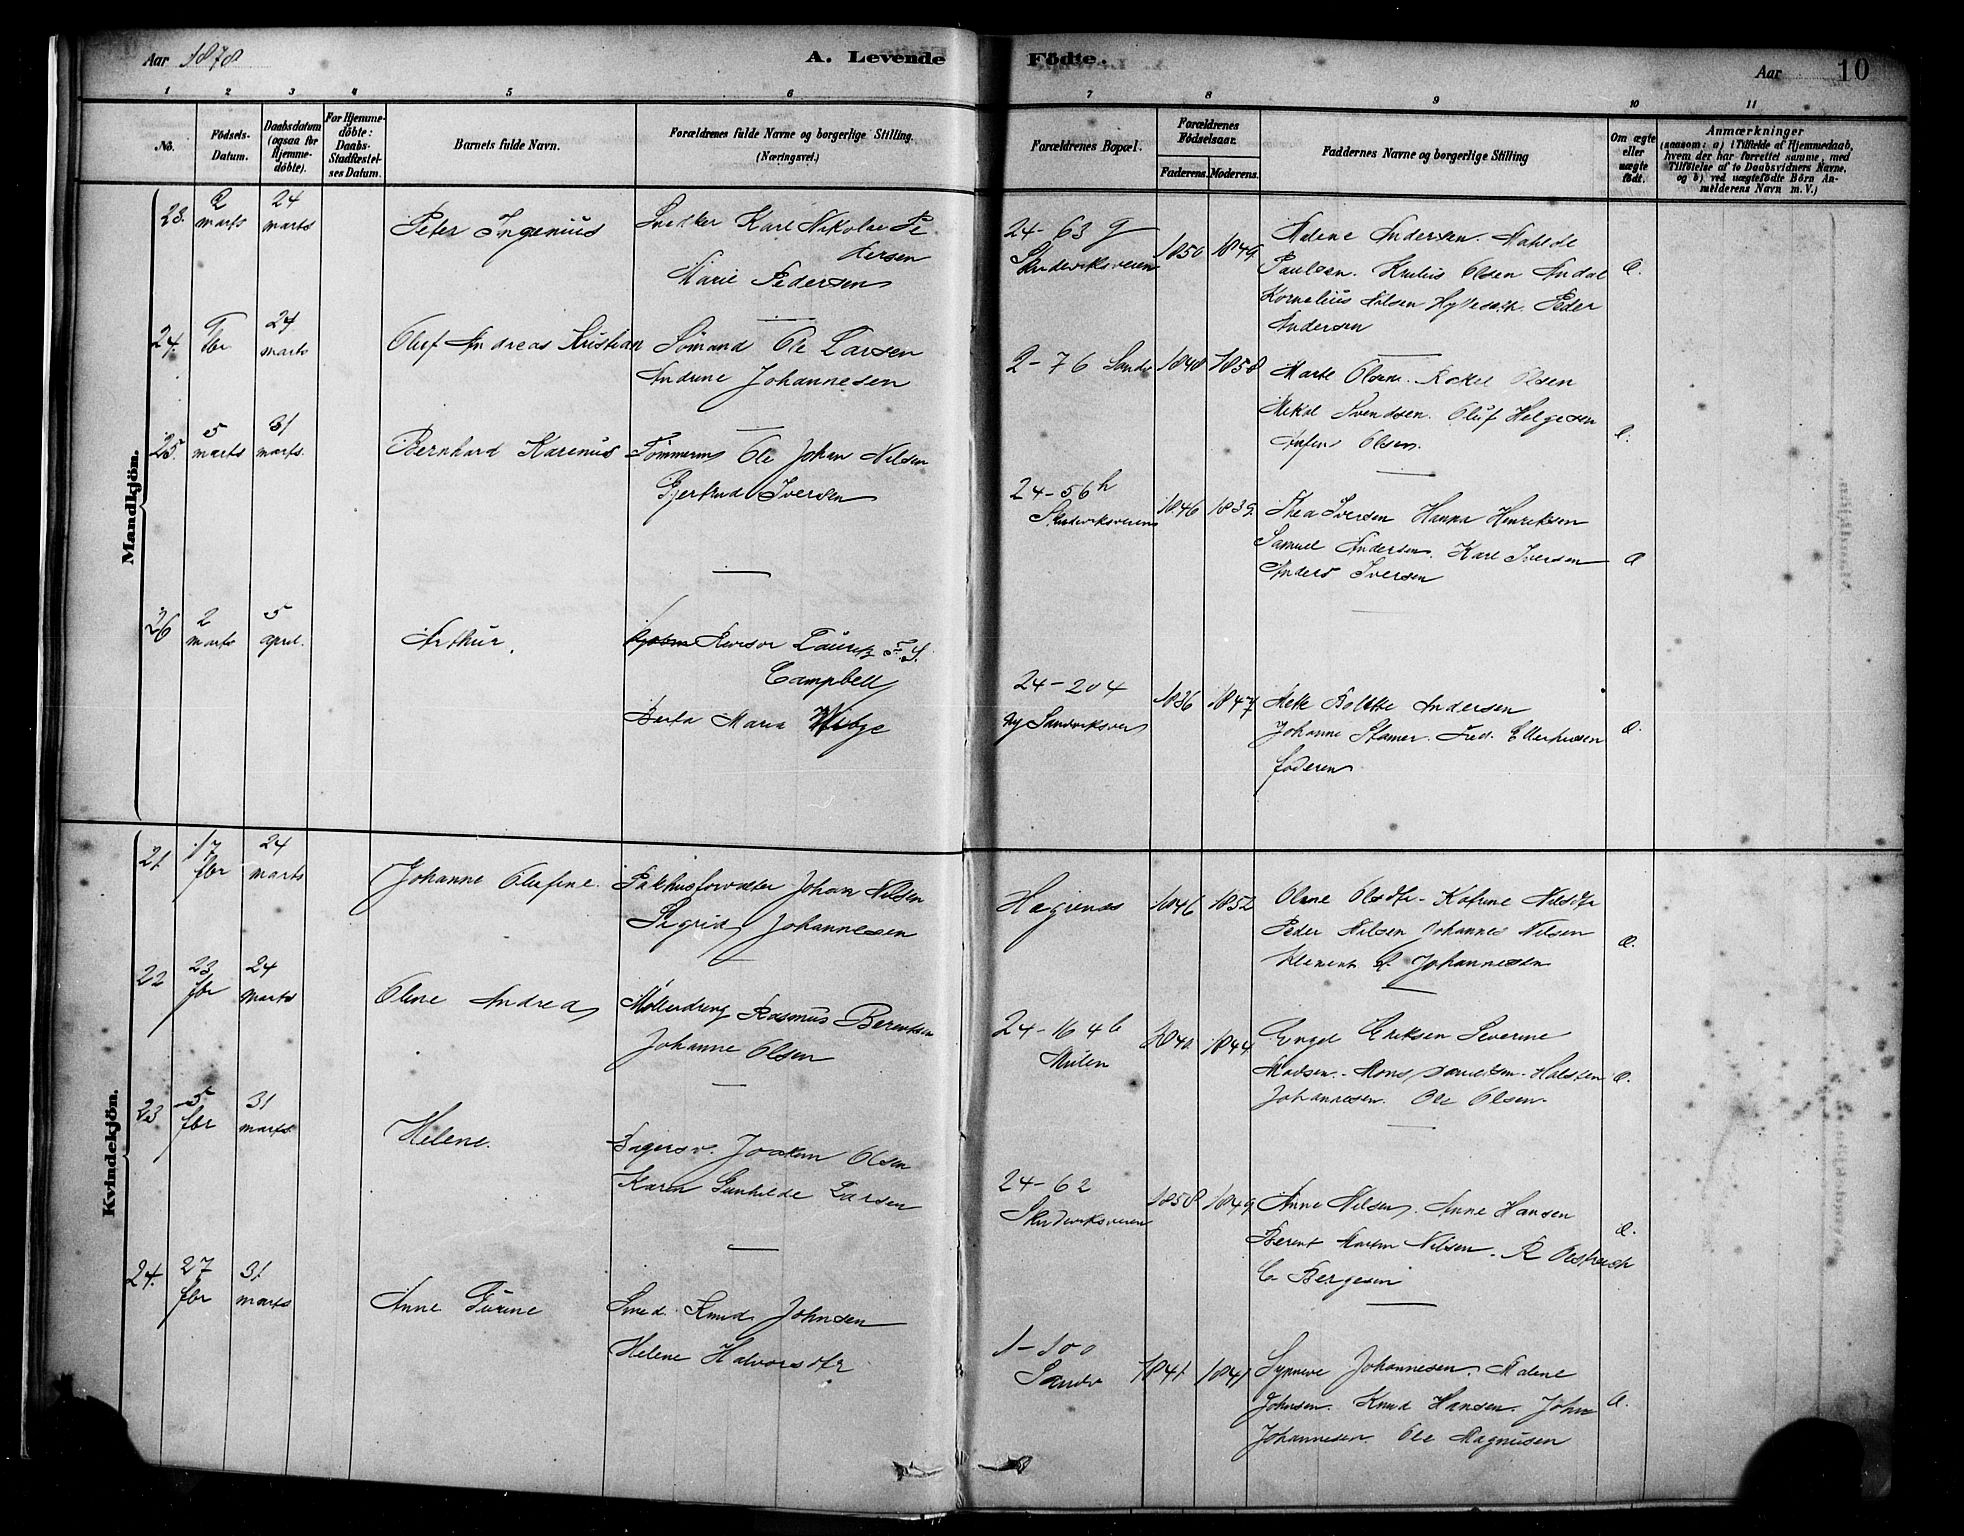 Aar 1878
A. Levende Födte.
Aar 10
1 2 3 4 5 6 7 8 9 10 11
No.
Födsels-Datum.
Daabsdatum (ogsaa for Hjemme-döbte).
For Hjemme-döbte: Daabs-Stadfæstel-ses Datum.
Barnets fulde Navn.
Forældrenes fulde Navne og borgerlige Stilling. (Næringsvei.)
Forældrenes Bopæl.
Forældrenes Födselsaar.
Faderens. Moderens.
Faddernes Navne og borgerlige Stilling
Om ægte eller uægte födt.
Anmærkninger
(saasom: a) i Tilfælde af Hjemmedaab, hvem der har forrettet samme, med Tilföielse af to Daabsvidners Navne, og b) ved uægtefödte Börn An-melderens Navn m. V.)
Mandkjön.
23. 2 marts 24 marts
Peter Ingenius
Karl Nikolai Pe
dersen
Marie Pedersen
24-63 g
Skudeviksveien
1850 1849
Malene Andersen. Matilde
Paulsen. Olsen
Kornelius Nilsen Peder
Andersen
Æ.
24. fbr 24 marts
Oluf Andreas Kristian
Sömand Ole Larsen
Andrine Johannesen
2-76 Sandv
1848 1858
Marte Olsen. Rakel Olsen
Mikal Svendsen. Oluf Helgesen
Olsen.
Æ.
25. 5 marts 31 marts.
Bernhard Karenus
Tömmerm Ole Johan Nilsen
Gjertrud Iversen
24-56 h
Skudeviksveien
1846 1839.
Thea Iversen Hanna Henriksen
Samuel Andersen. Karl Iversen
Anders Iversen
Æ
26 2 marts 5 april.
Arthur.
Revisor Lauritz F. S.
Campbell
Berta Maria Wibye
24-204
ny Sandviksvei
1836 1847
Mette Bolette Andersen
Johanne Stamer. Fred. Ellerhusen
faderen
Æ.
Kvindekjön.
21. 17 fbr 24 marts
Johanne Olufine.
Pakhusforvalter Johan Nilsen
Sigrid Johannesen
Hegrenes
1846 1852
Oline Olsdtr - Katrine Nilsdtr
Peder Nilsen Johannes Nilsen
Klement L. Johannesen
Æ.
22 23 fbr 24 marts
Oline Andrea
Mollerdreng Rasmus Berentsen
Johanne Olsen
24-164 b
Mulen
1840. 1844
Engel Eriksen Severine
Madsen. Mons Danielsen. Halsten
Johannesen. Ole Olsen.
Æ.
23 5 fbr 31 marts.
Helene.
Joakim Olsen
Karen Gunhilde Larsen
24-62
Skudeviksveien
1858 1849
Anne Nilsen. Anne Hansen
Berent Martin Nilsen. R Oestreich
C. Bergesen
Æ.
24. 27 fbr 31. marts
Anne Gurine
Smed. Knud Johnsen
Helene Halvorsdtr
1-100
Sandv
1841. 1841
Synneve Johannesen. Malene
Johnsen. Knud Hansen. John
Johannesen. Ole Magnusen
Æ.